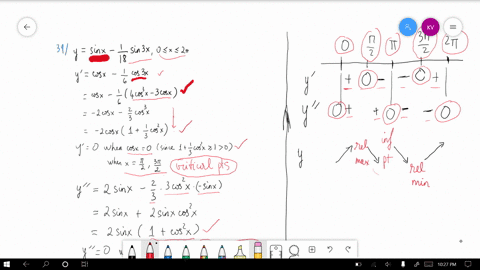 39/ y = sinx - 1/18 sin3x, 0≤x≤2π
y' = cosx - 1/6 cos3x
= cosx - 1/6 (4cos³x-3cosx)
= -2cosx - 2/3 cos³x
= -2cosx (1 + 1/3 cos²x)
y'=0 when cosx=0 (since 1+1/3cos²x≥1>0)
when x = π/2, 3π/2 critical pts
y'' = 2 sinx - 2/3 · 3cos²x · (-sinx)
= 2sinx + 2sinxcos²x
= 2sinx (1 + cos²x)
y''=0 w
0 π/2 π 3π/2 2π
y' + 0 - - 0 +
y'' 0 + + 0 - - 0
y rel max inf pt rel min
KV
10:27 PM